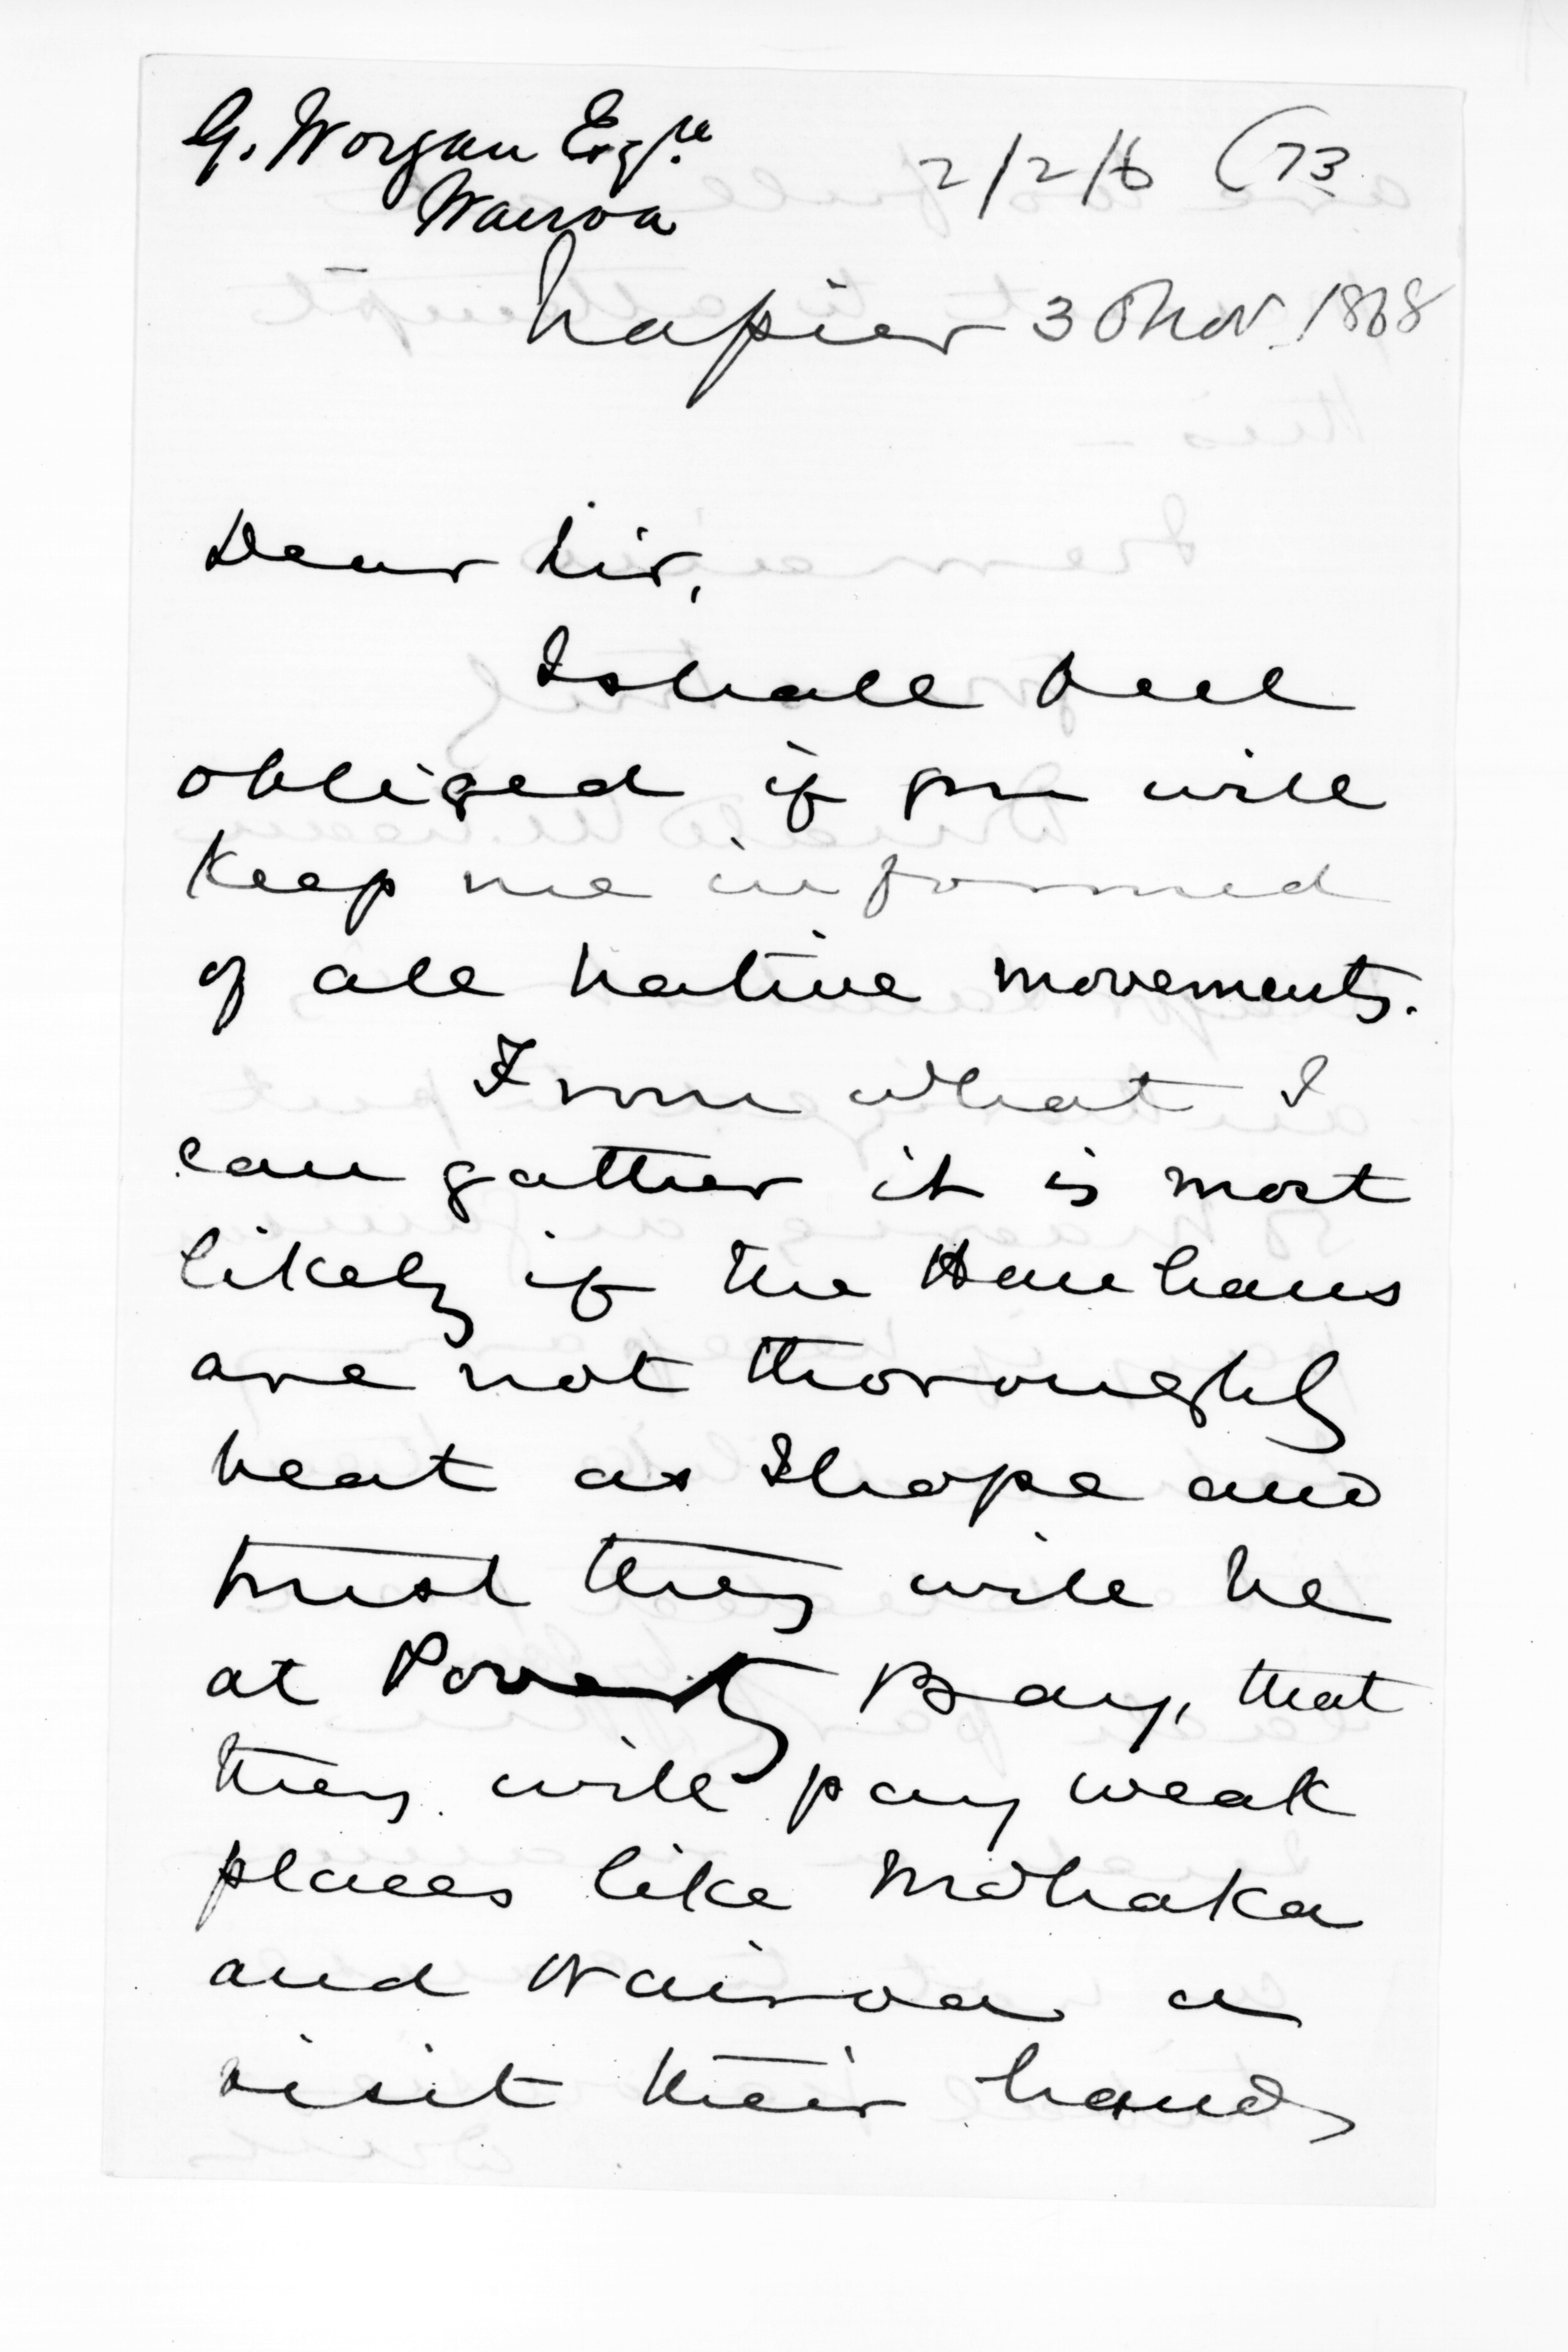 G. Worgan Esqre
Wairoa
2/2/6 (73
Napier 30 Nov. 1868
Dear Sir,
I shall feel
obliged if you will
keep me informed
of all native movements.
From what I
can gather it is most
likely if the Hauhaus
are not thoroughly
beat as I hope and
trust they will be
at Poverty Bay, that
they will pay weak
places like Mohaka
and Wairoa a
visit their hands